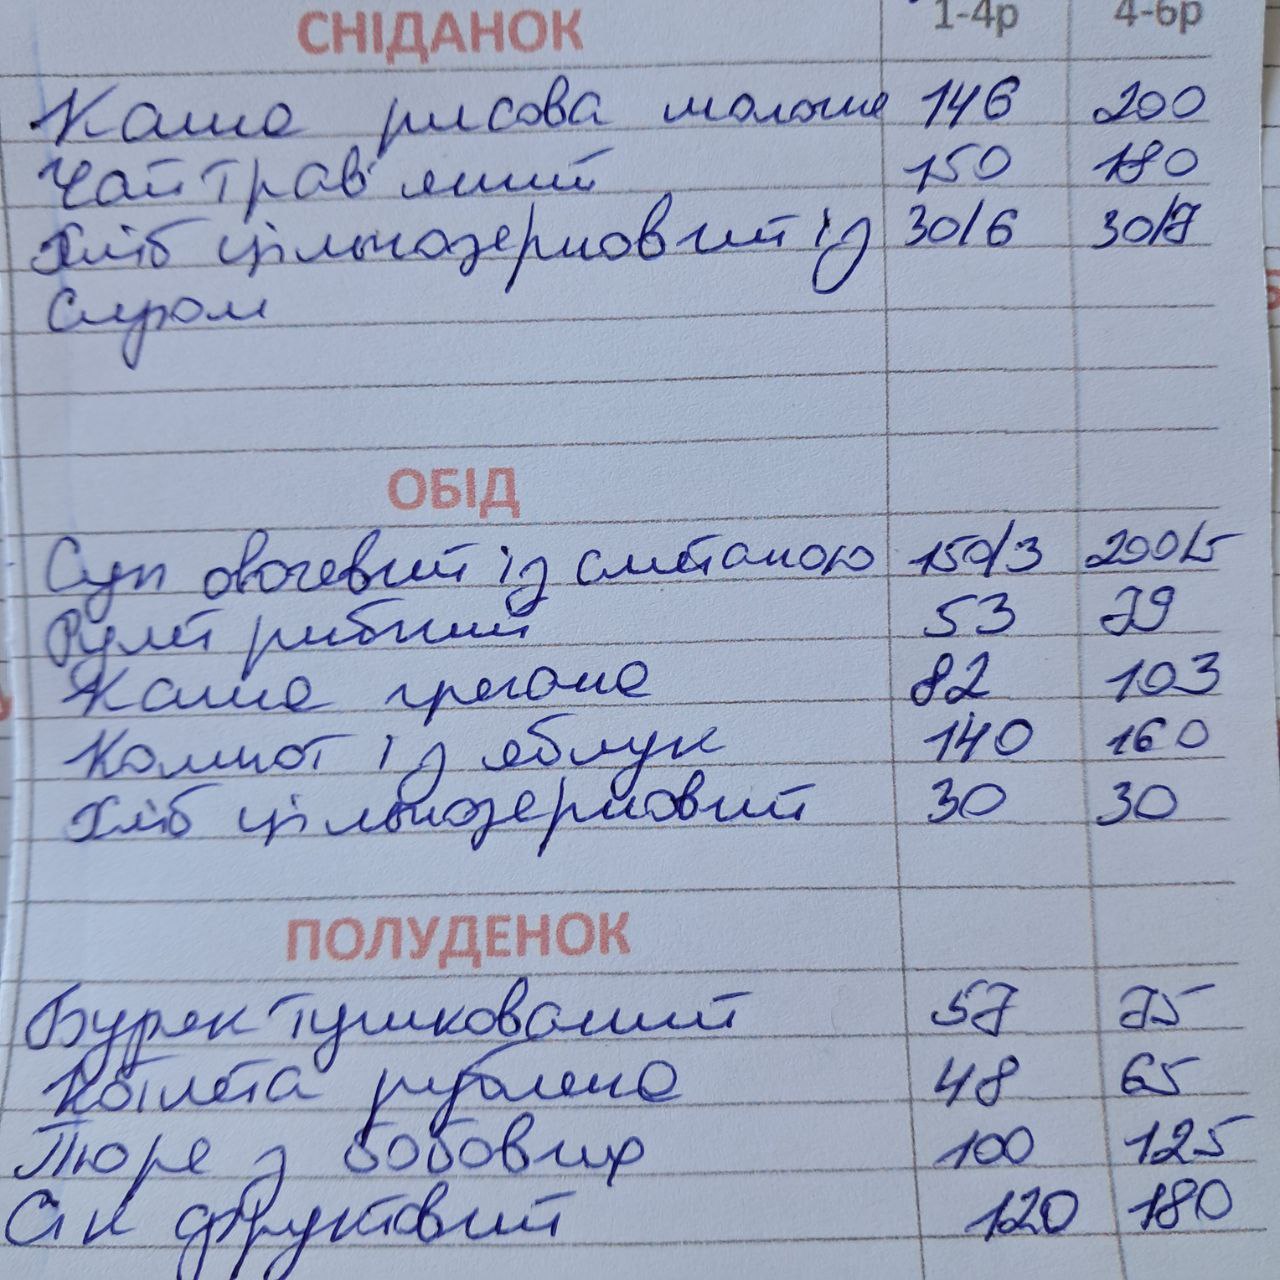 СНІДАНОК 1-4р 4-6р
Каша рисова молочна 146 200
Чай трав'яний 150 180
Хліб цільнозерновий із 30/6 30/7
Сиром
ОБІД
Суп овочевий із сметаною 150/3 200/5
Рулет рибний 53 79
Каша гречана 82 103
Компот із яблук 140 160
Хліб цільнозерновий 30 30
ПОЛУДЕНОК
Буряк тушкований 57 75
Котлета рублена 48 65
Пюре з бобових 100 125
Сік фруктовий 120 180